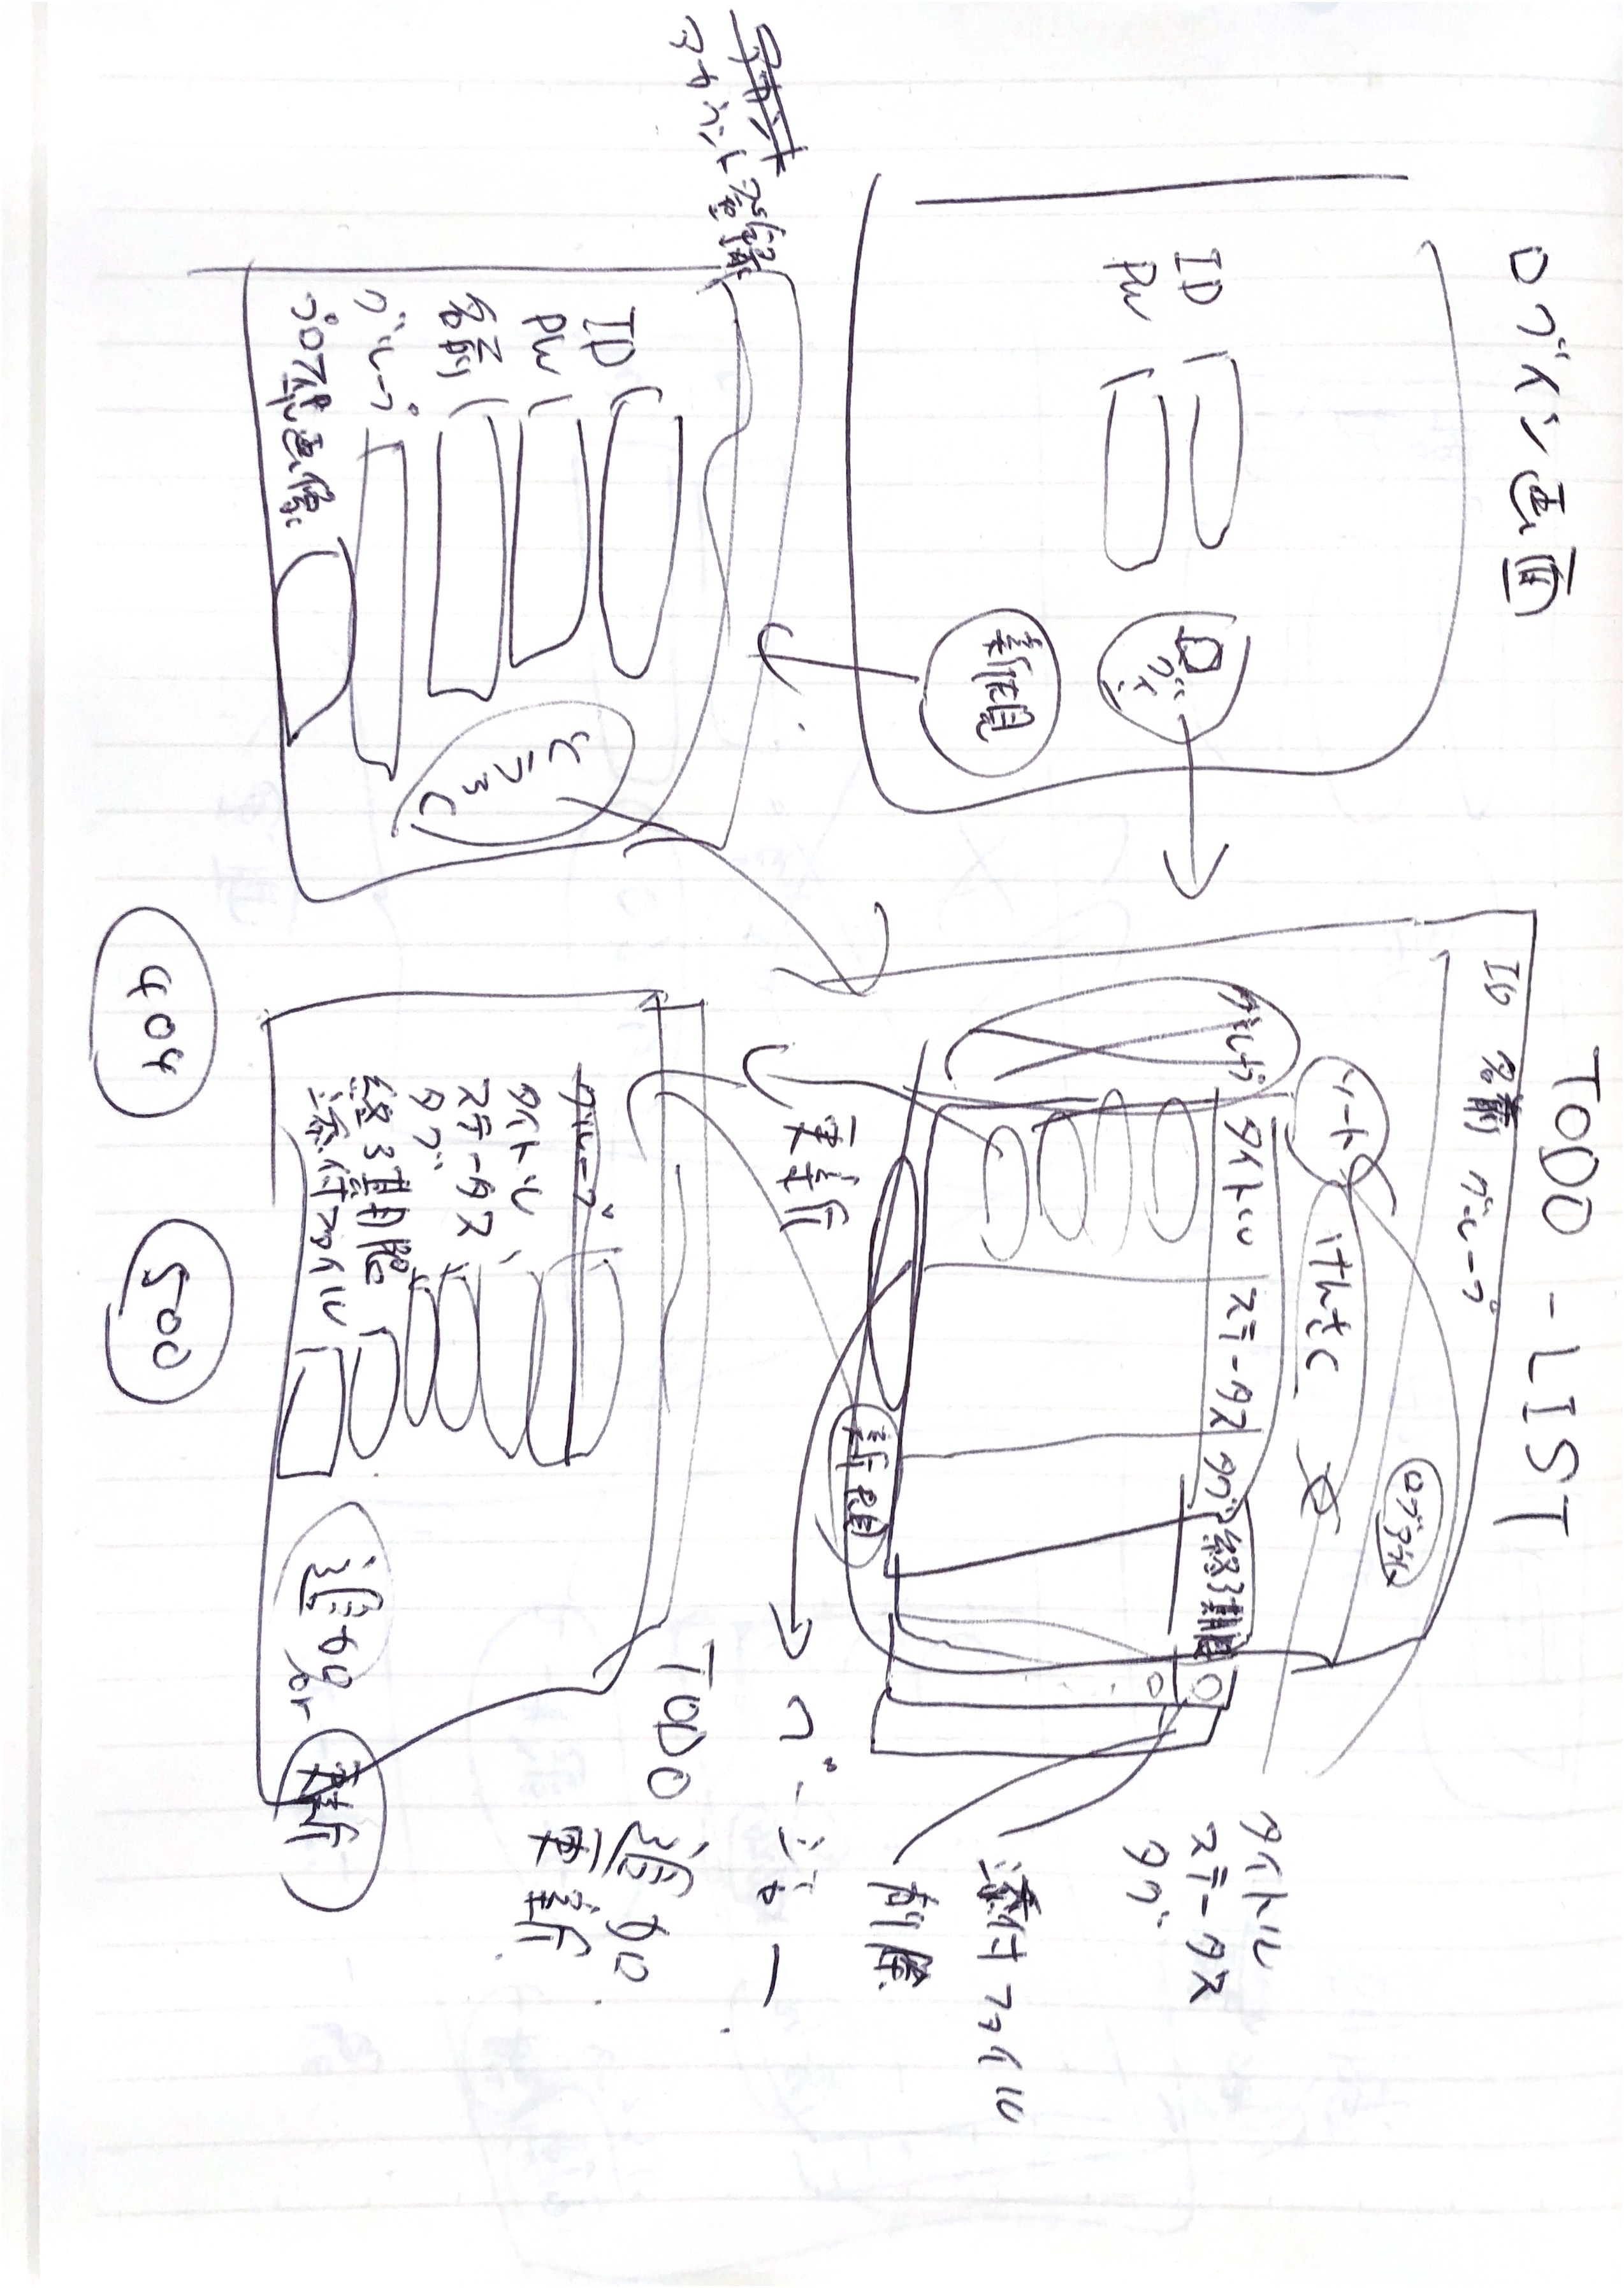 ログイン画面
ID
PW
ログイン
新規
アカウント登録
ID
PW
名前
グループ
プロフ画像
とうろく
TODO-LIST
ID 名前 グループ
ログアウト
ソート
けんさく
タイトル ステータス タグ 終了期日
新規
更新
タイトル
ステータス
タグ
添付ファイル
削除
ページャー
TODO 追加
更新
グループ
タイトル
ステータス
タグ
終了期限
添付ファイル
追加 or 更新
404
500